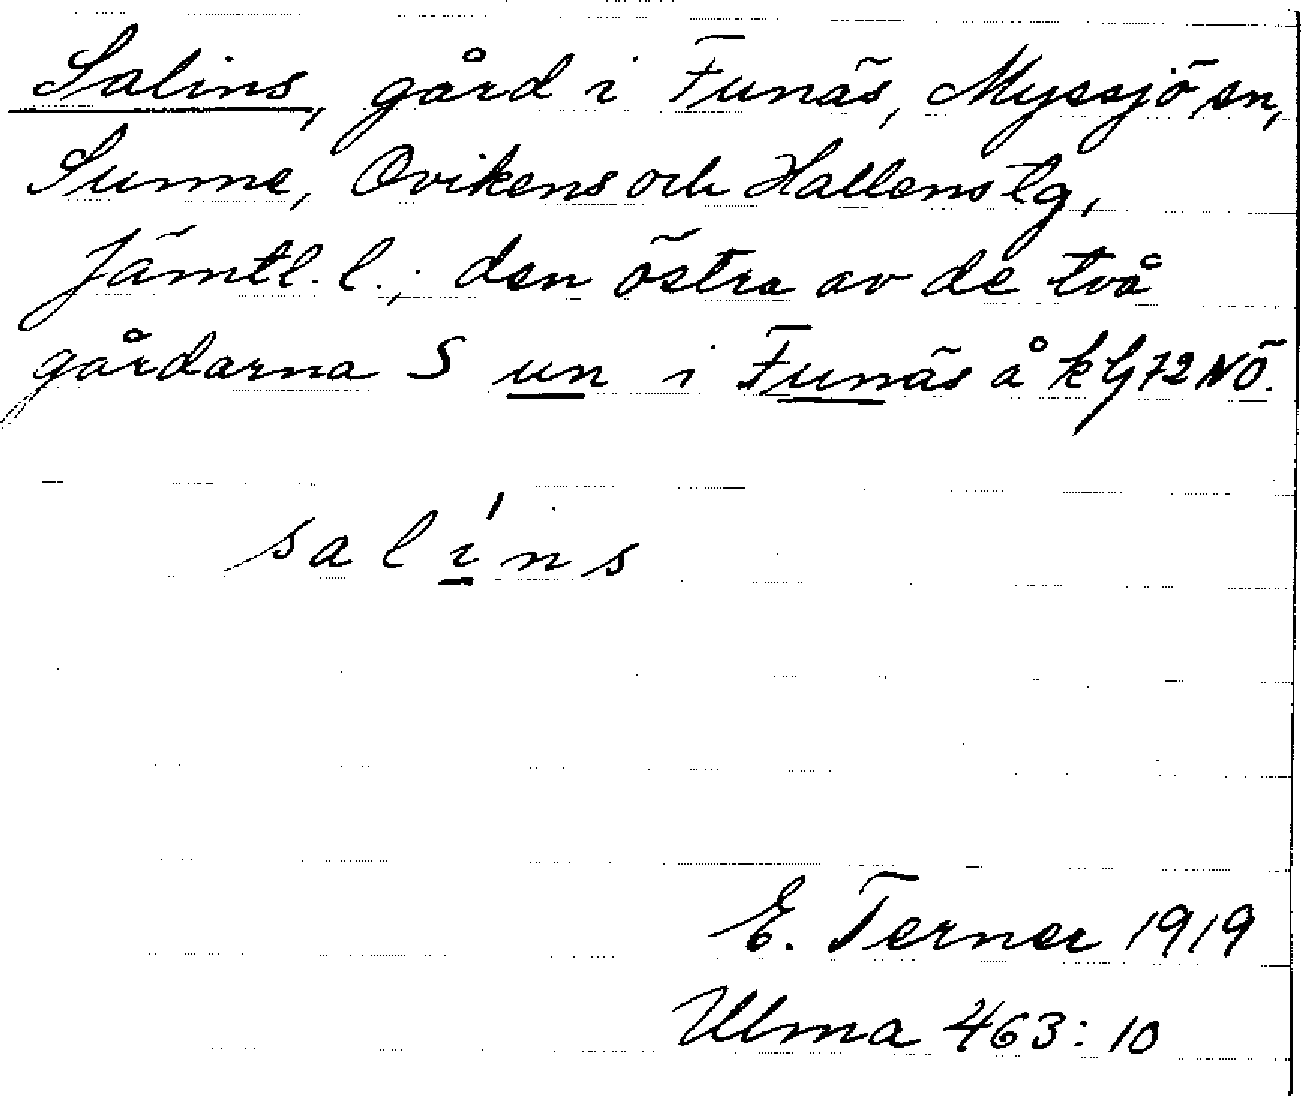 Salins, gård i Funäs, Myssjö sn,
Sunne, Ovikens och Hallens tg,
Jämtl. l., den östra av de två
gårdarna S un i Funäs å kbl 72 NÖ.
salíns
E. Terner 1919
Ulma 463:10